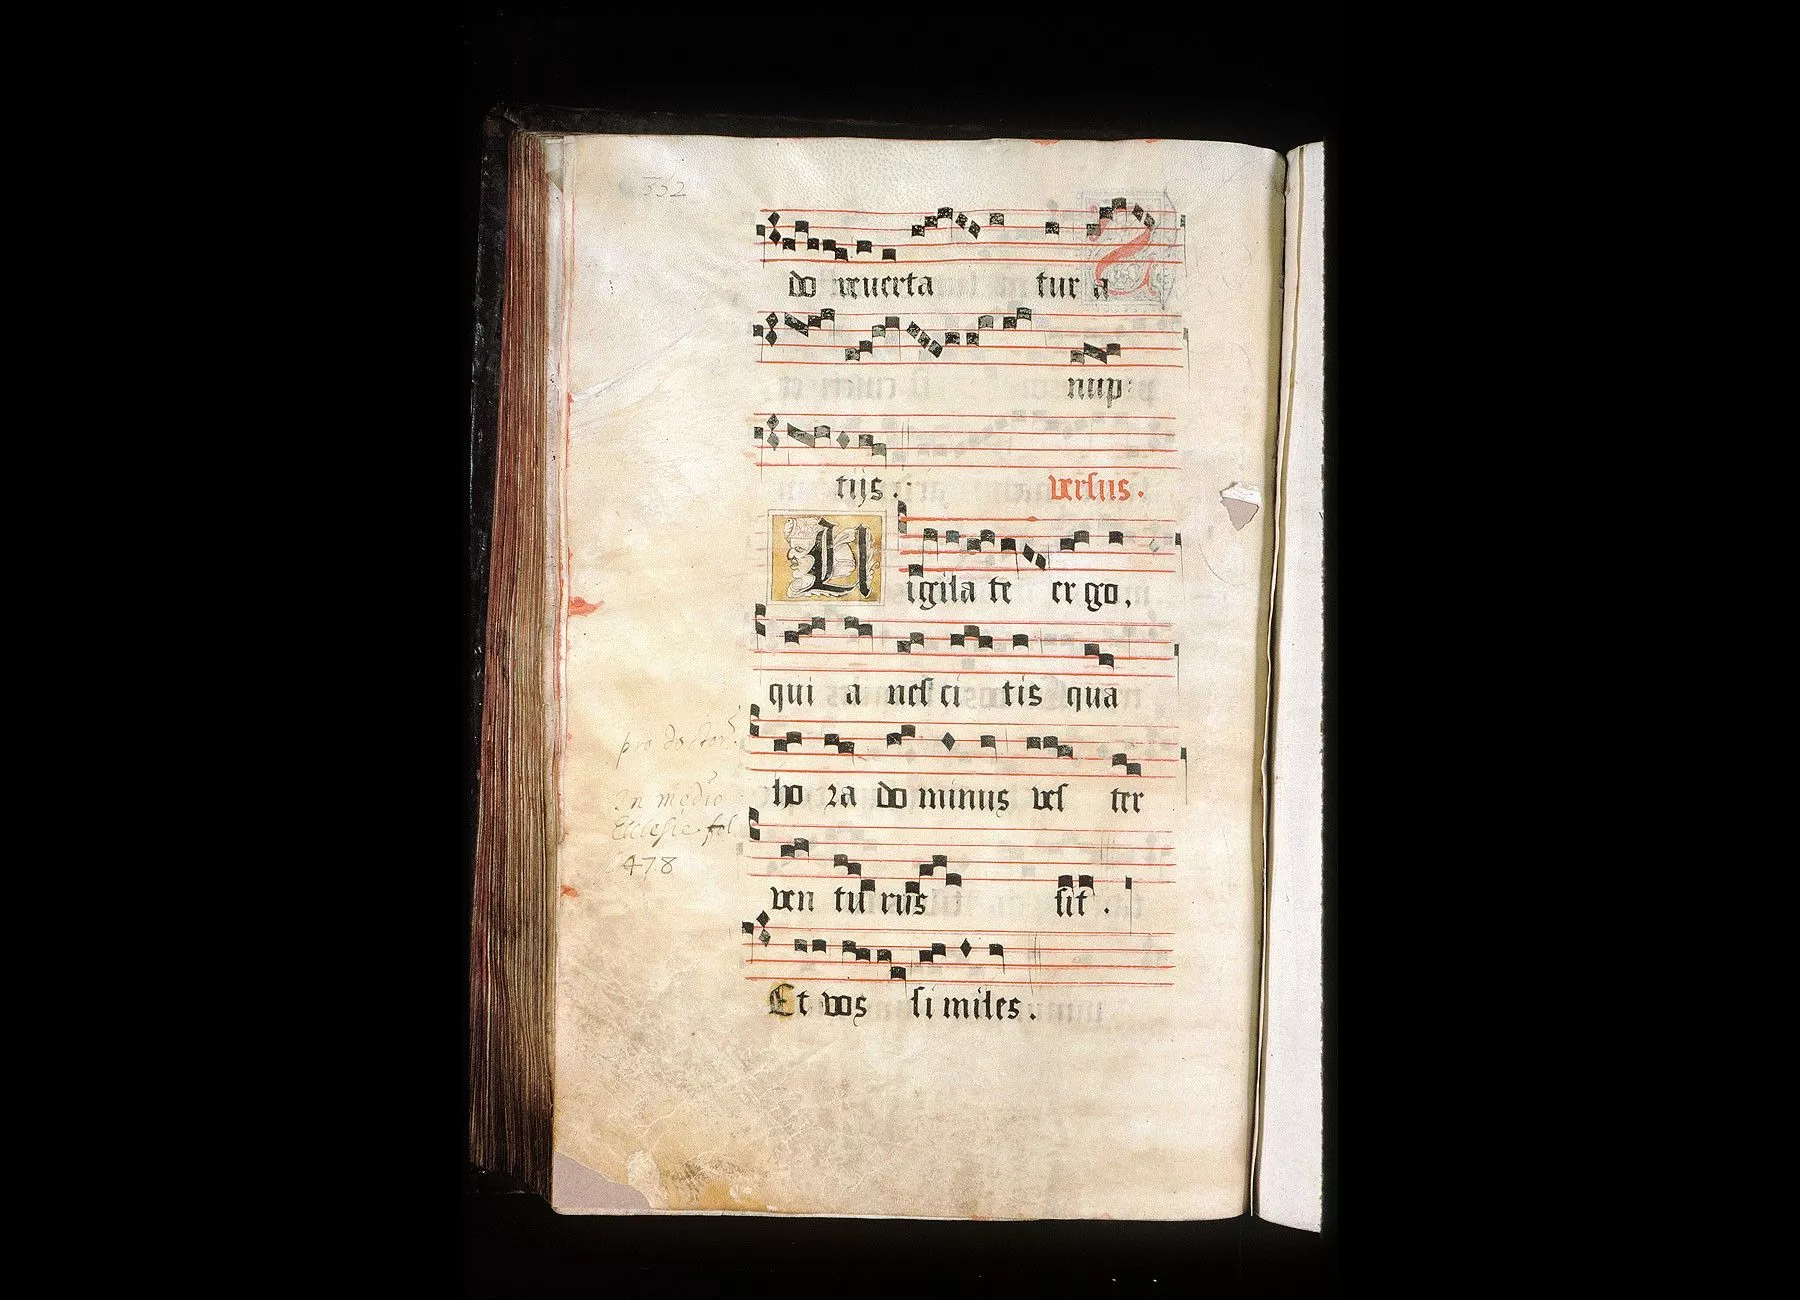 332
do reuerta tur a
nup:
tijs.
versus.
Uigila te er go,
qui a nesci tis qua
ho ra do minus ves ter
ven tu rus sit.
Et vos si miles.
pro doctor.
In medio
Ecclesie fol
478